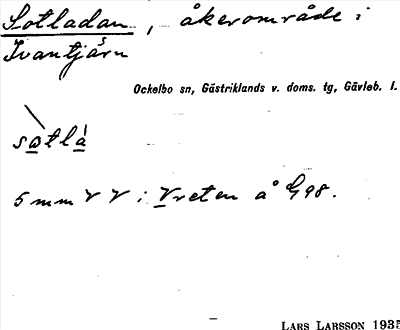 Sotladan, åkerområde i
Ivantjärn
Ockelbo sn, Gästriklands v. doms. tg, Gävleb. l.
5 mm V V i Vreten å G 98.
LARS LARSSON 1935